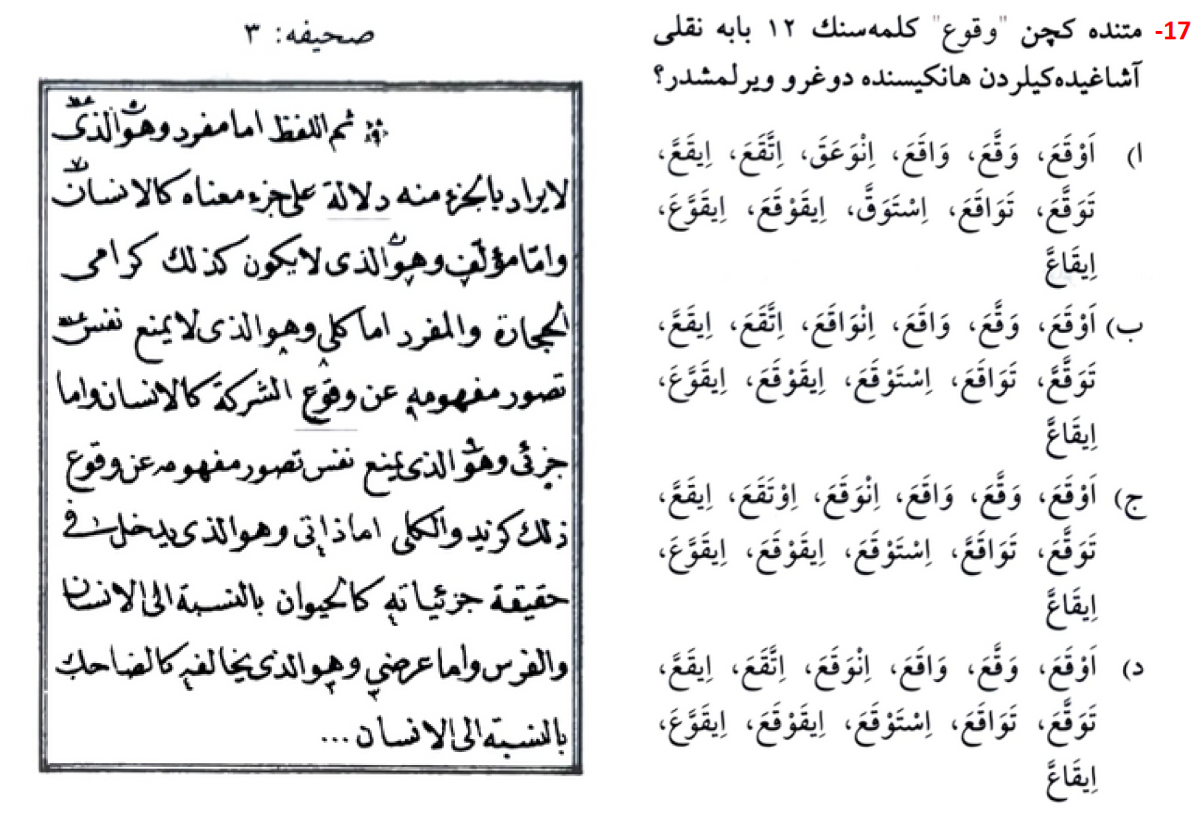 17- متنده كچن "وقوع" كلمه‌سنك ١٢ بابه نقلی
آشاغیده‌كیلردن هانكیسنده دوغرو ویرلمشدر؟
ا) اَوْقَعَ، وَقَّعَ، وَاقَعَ، اِنْوَعَقَ، اِتَّقَعَ، اِیقَعَّ،
تَوَقَّعَ، تَوَاقَعَ، اِسْتَوَقَّ، اِیقَوْقَعَ، اِیقَوَّعَ،
اِیقَاعَّ
ب) اَوْقَعَ، وَقَّعَ، وَاقَعَ، اِنْوَاقَعَ، اِتَّقَعَ، اِیقَعَّ،
تَوَقَّعَّ، تَوَاقَعَ، اِسْتَوْقَعَ، اِیقَوْقَعَ، اِیقَوَّعَ،
اِیقَاعَّ
ج) اَوْقَعَ، وَقَّعَ، وَاقَعَ، اِنْوَقَعَ، اِوْتَقَعَ، اِیقَعَّ،
تَوَقَّعَ، تَوَاقَعَّ، اِسْتَوْقَعَ، اِیقَوْقَعَ، اِیقَوَّعَ،
اِیقَاعَّ
د) اَوْقَعَ، وَقَّعَ، وَاقَعَ، اِنْوَقَعَ، اِتَّقَعَ، اِیقَعَّ،
تَوَقَّعَ، تَوَاقَعَ، اِسْتَوْقَعَ، اِیقَوْقَعَ، اِیقَوَّعَ،
اِیقَاعَّ
صحیفه: ٣
ثم اللفظ اما مفرد وهو الذی
لا یراد بالجزء منه دلالة علی جزء معناه كالانسان
وامّا مؤلّف وهو الذی لا یكون كذلك كرامی
الحجارة والمفرد اما كلی وهو الذی لا یمنع نفس
تصور مفهومه عن وقوع الشركة كالانسان واما
جزئی وهو الذی یمنع نفس تصور مفهومه عن وقوع
ذلك كزید والكلی اما ذاتی وهو الذی یدخل فی
حقیقة جزئیاته كالحیوان بالنسبة الی الانسان
والفرس واما عرضی وهو الذی یخالفه كالضاحك
بالنسبة الی الانسان ...